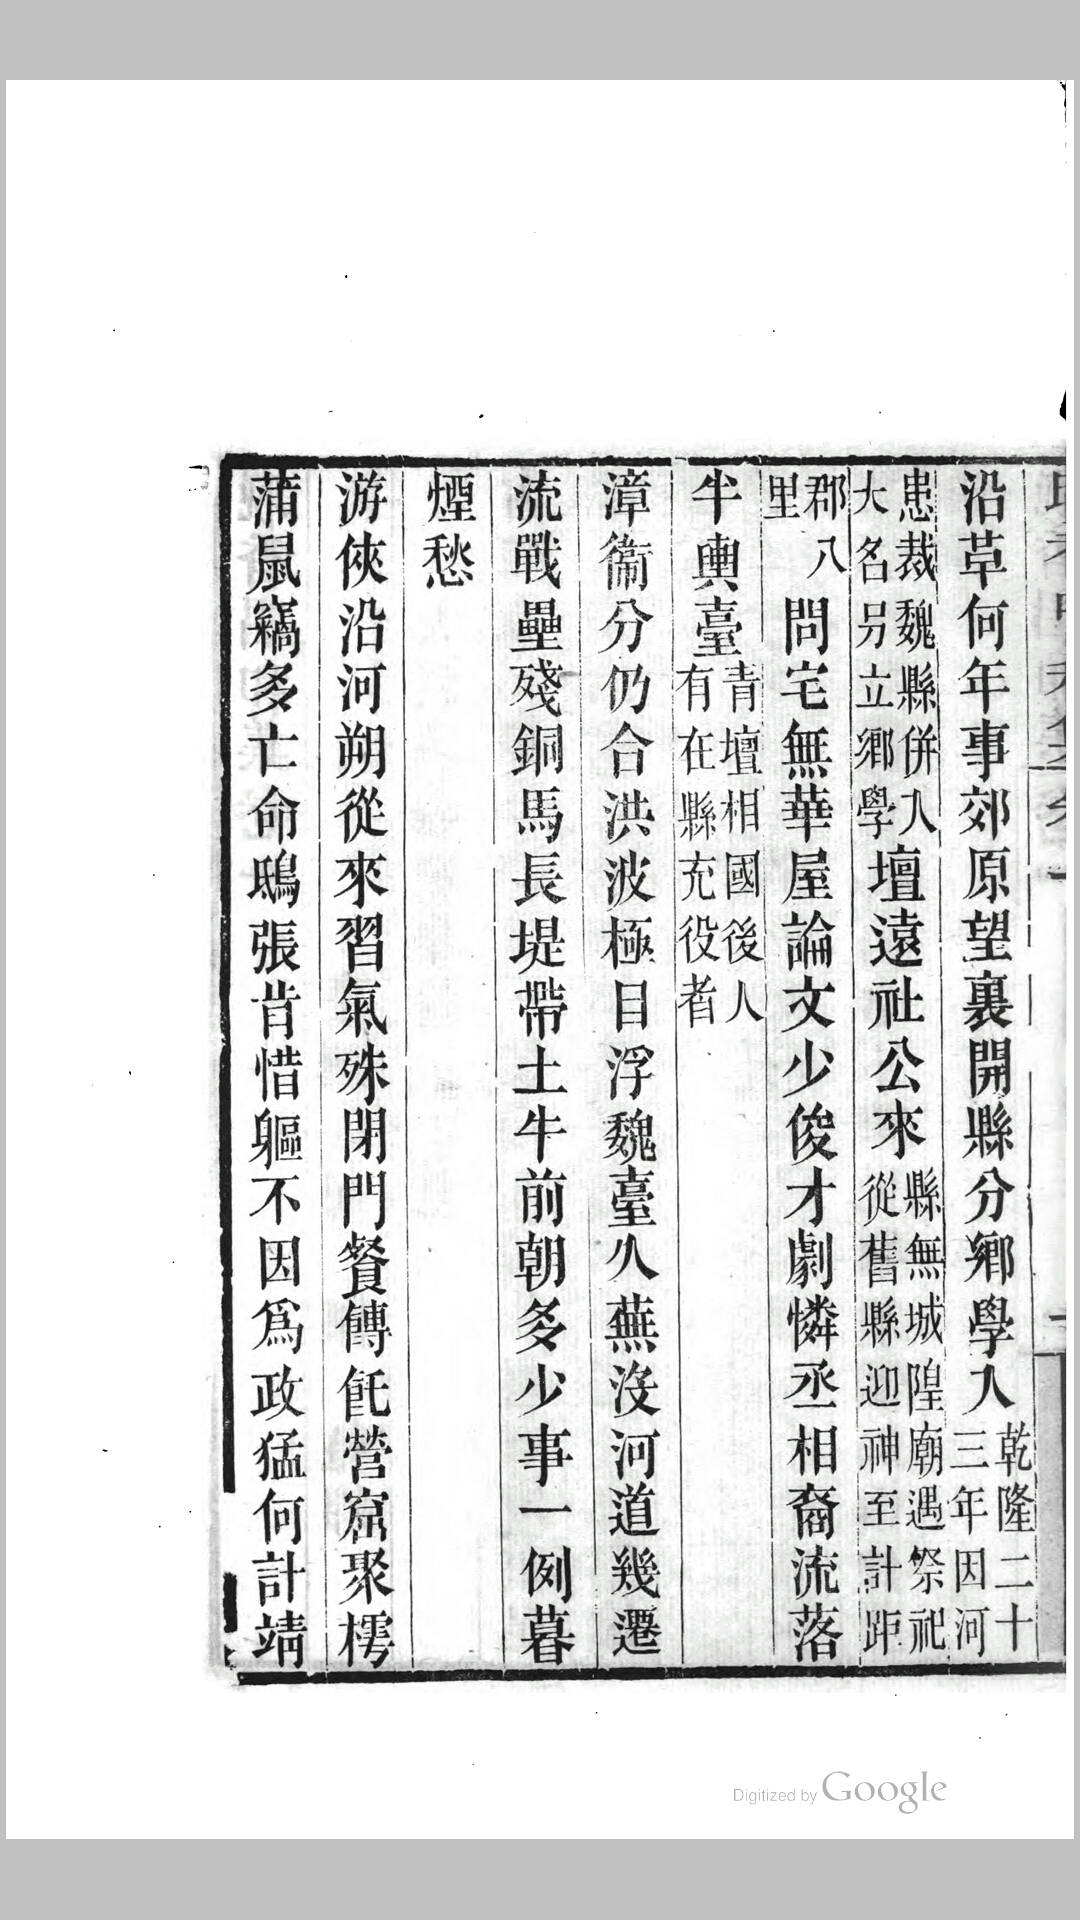 沿草何年事郊原望裏開縣分鄉學人乾隆二十三年因河
患裁魏縣併入大名另立鄉學壇遠社公來縣無城隍廟遇祭祀從舊縣迎神至計距
郡八里問宅無華屋論文少俊才劇憐丞相裔流落
半輿臺青壇相國後人有在縣充役者
漳衞分仍合洪波極目浮魏臺久蕪沒河道幾遷
流戰壘殘銅馬長堤帶土牛前朝多少事一例暮
煙愁
游俠沿河朔從來習氣殊閉門餐傅飥營窟聚樗
蒲鼠竊多亡命鴟張昔惜軀不因爲政猛何計靖
Digitized by Google